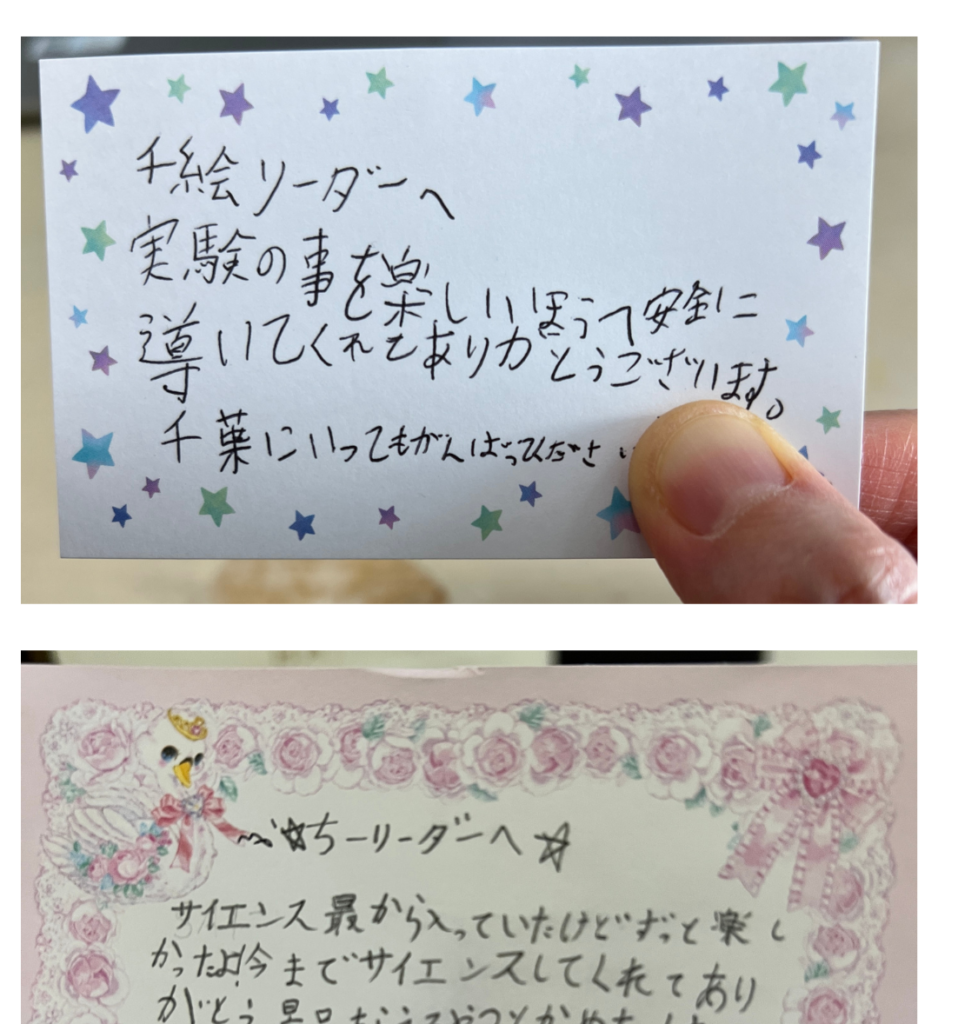 千絵リーダーへ
実験の事を楽しいほうへ安全に
導いてくれてありがとうございます。
千葉にいってもがんばってくださ
ちーリーダーへ
サイエンス最から入っていたけどずっと楽し
かったよ!今までサイエンスしてくれてあり
がとう